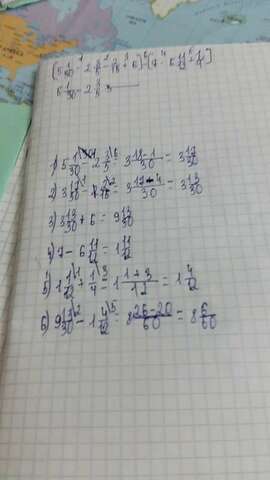 (5 1/30 - 2 2/5 - 2/15 + 6) - (7 - 6 11/12 + 1/4)
5 1/30 - 2 2/5
1) 5 1/30 - 2 2/5 = 3 18-1/30 = 3 17/30
2) 3 17/30 - 2/15 = 3 17-4/30 = 3 13/30
3) 3 13/30 + 6 = 9 13/30
4) 7 - 6 11/12 = 1 11/12
5) 1 1/12 + 1/4 = 1 1+3/12 = 1 4/12
6) 9 13/30 - 1 4/12 = 8 26-20/60 = 8 6/60